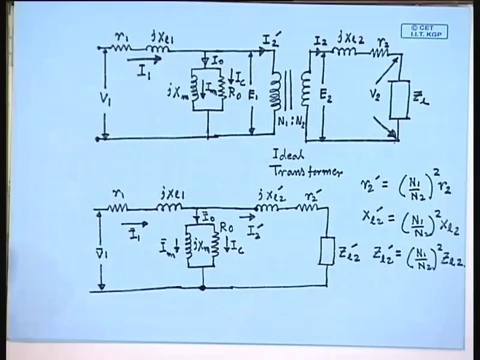 © CET
I.I.T. KGP
r₁ jxl1 I₂' I₂ jxl2 r₂
I₀
I₁ Im Ic
V₁ jXm R₀ E₁ E₂ V₂ Zl
N₁ : N₂
Ideal
Transformer
r₁ jxl1 jxl2' r₂'
Ī₀
Ī₁ R₀ I₂'
V̄₁ Īm jXm Ic Zl2'
r₂' = (N₁/N₂)² r₂
xl2' = (N₁/N₂)² xl2
Zl2' = (N₁/N₂)² Zl2.